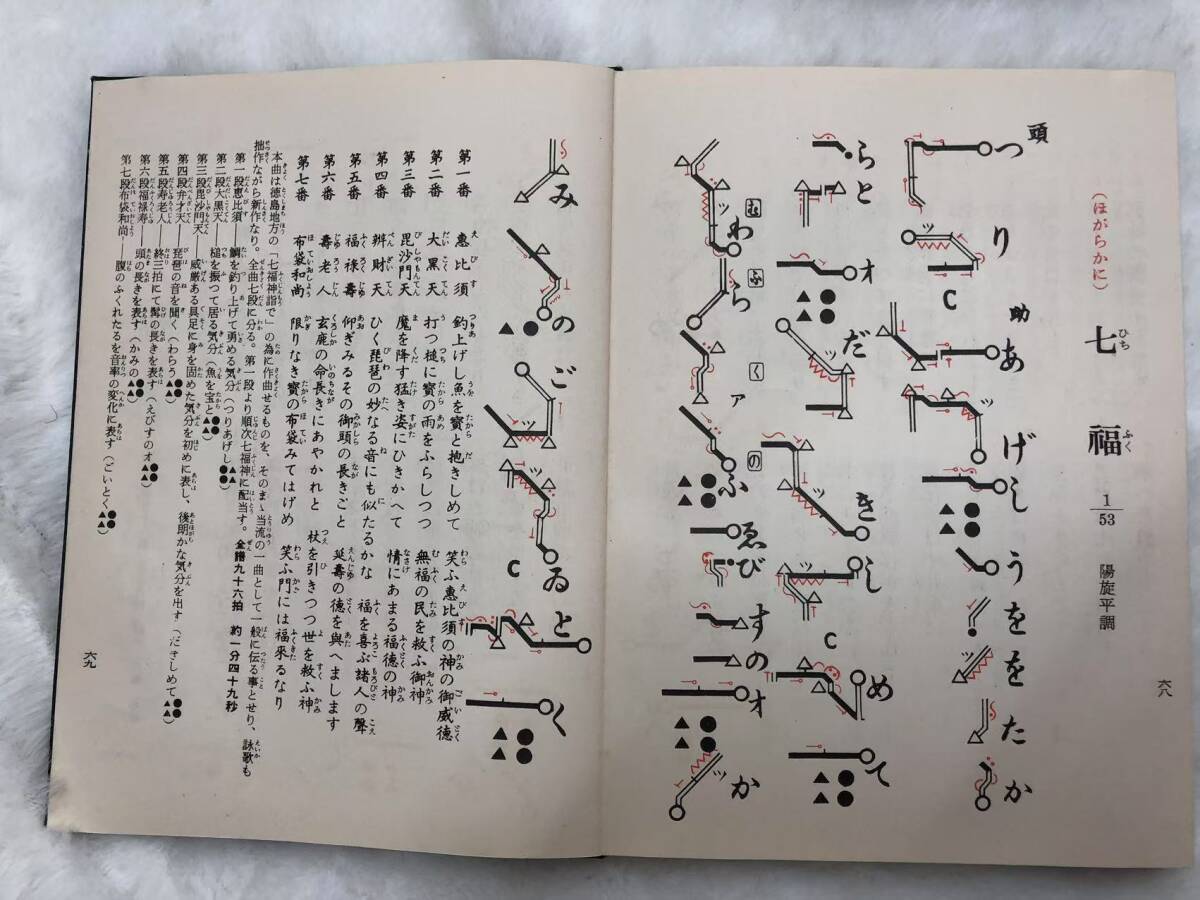 (ほがらかに)
七福 1/53 陽旋平調
ひち ふく
頭 つ り 助 あ げ し う を を た か
C
ら と オ だ き し め て
C
わ ら ァ ふ ゑ び す の オ か
む ふ く の
六八
み の ご ゐ と く
C
第一番 惠比須 釣上げし魚を寳と抱きしめて 笑ふ惠比須の神の御威德
第二番 大黒天 打つ槌に寳の雨をふらしつつ 無福の民を救ふ御神
第三番 毘沙門天 魔を降す猛き姿にひきかへて 情にあまる福徳の神
第四番 辨財天 ひく琵琶の妙なる音にも似たるかな 福を喜ぶ諸人の聲
第五番 福祿壽 仰ぎみるその御頭の長きごと 延壽の德を與へまします
第六番 壽老人 玄鹿の命長きにあやかれと 杖を引きつつ世を救ふ神
第七番 布袋和尚 限りなき寳の布袋みてはげめ 笑ふ門には福來るなり
本曲は徳島地方の「七福神詣で」の為に作曲せるものを、そのまゝ当流の一曲として一般に伝る事とせり、詠歌も
拙作ながら新作なり。全曲七段に分る。第一段より順次七福神に配当す。 全譜九十六拍 約一分四十九秒
第一段恵比須――鯛を釣り上げて勇める気分(つりあげし●●▲▲)
第二段大黒天――槌を振つて居る気分(魚を宝と●●▲▲)
第三段毘沙門天――威厳ある具足に身を固めた気分を初めに表し、後朗かな気分を出す(だきしめて●●▲▲)
第四段弁才天――琵琶の音を聞く(わらう●●▲▲)
第五段寿老人――終三拍にて髯の長きを表す(えびすのオ●●▲▲)
第六段福禄寿――頭の長きを表す(かみの●●▲▲)
第七段布袋和尚――腹のふくれたるを音率の変化に表す(ごいとく●●▲▲)
六九